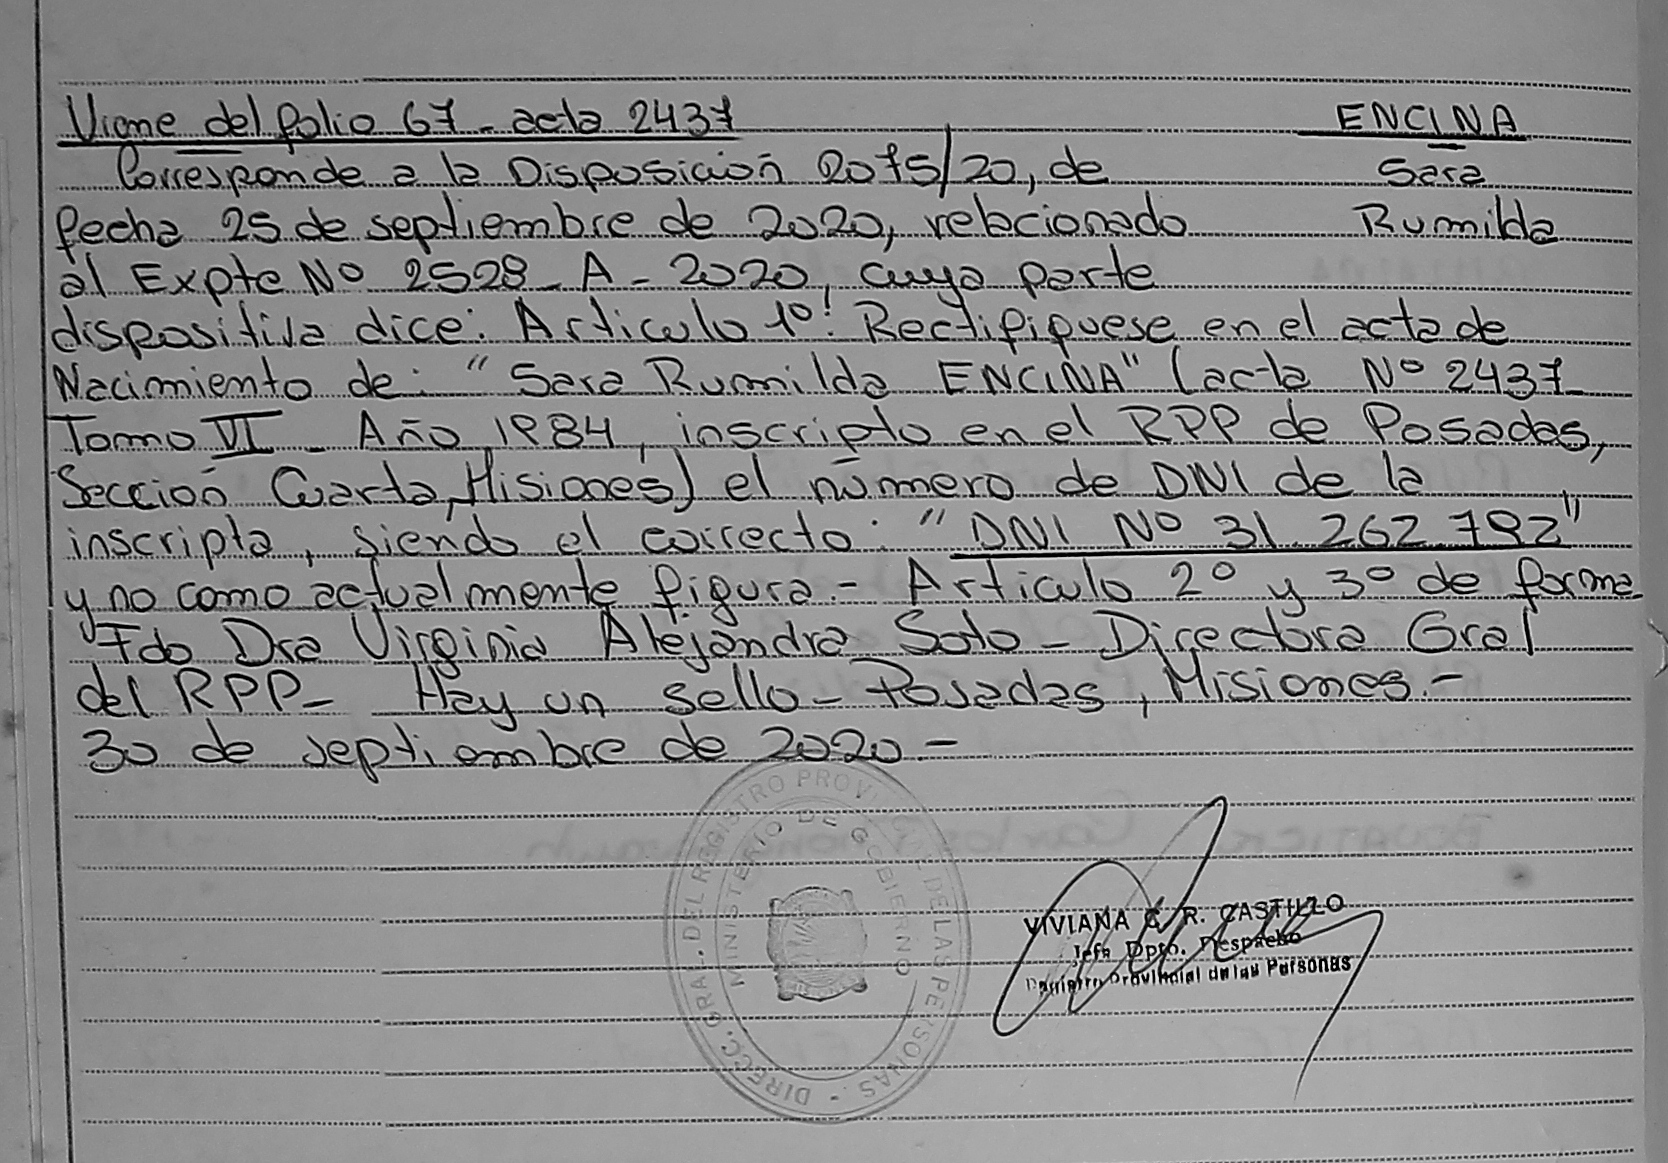 Viene del folio 67 - acta 2437
ENCINA
Sara
Rumilda
Corresponde a la Disposición 2075/20, de
fecha 25 de septiembre de 2020, relacionado
al Expte Nº 2528 - A - 2020, cuya parte
dispositiva dice: Articulo 1º: Rectifiquese en el acta de
Nacimiento de: "Sara Rumilda ENCINA" (acta Nº 2437
Tomo VI - Año 1984, inscripto en el RPP de Posadas,
Sección Cuarta, Misiones) el número de DNI de la
inscripta, siendo el correcto: "DNI Nº 31.262.792"
y no como actualmente figura.- Articulo 2º y 3º de forma
Fdo Dra Virginia Alejandra Soto - Directora Gral
del RPP - Hay un sello - Posadas, Misiones.-
30 de septiembre de 2020 -
DIRECC. GRAL. DEL REGISTRO PROVINCIAL DE LAS PERSONAS.
MINISTERIO DE GOBIERNO
VIVIANA C. R. CASTILLO
Jefa Dpto. Despacho
Registro Provincial de las Personas